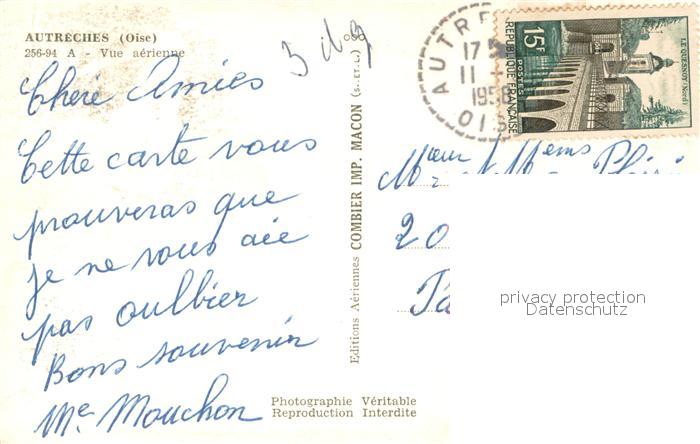 AUTRÊCHES (Oise)
256-94 A - Vue aérienne
Cheré Amies
Cette carte vous
prouveras que
je ne vous aie
pas oulbier
Bons souvenir
Me Mouchon
Editions Aériennes COMBIER IMP. MACON (S.-ET-L.)
Photographie Véritable
Reproduction Interdite
AUTRE
17
11
1958
OIS
15F
POSTES
REPUBLIQUE FRANÇAISE
LE QUESNOY (Nord)
20
privacy protection
Datenschutz